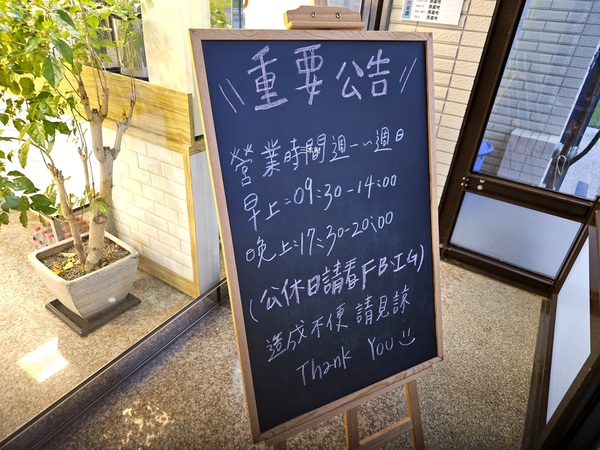 \\重要公告//
營業時間週一~週日
早上:09:30-14:00
晚上:17:30-20:00
(公休日請看FB.IG)
造成不便 請見諒
Thank You